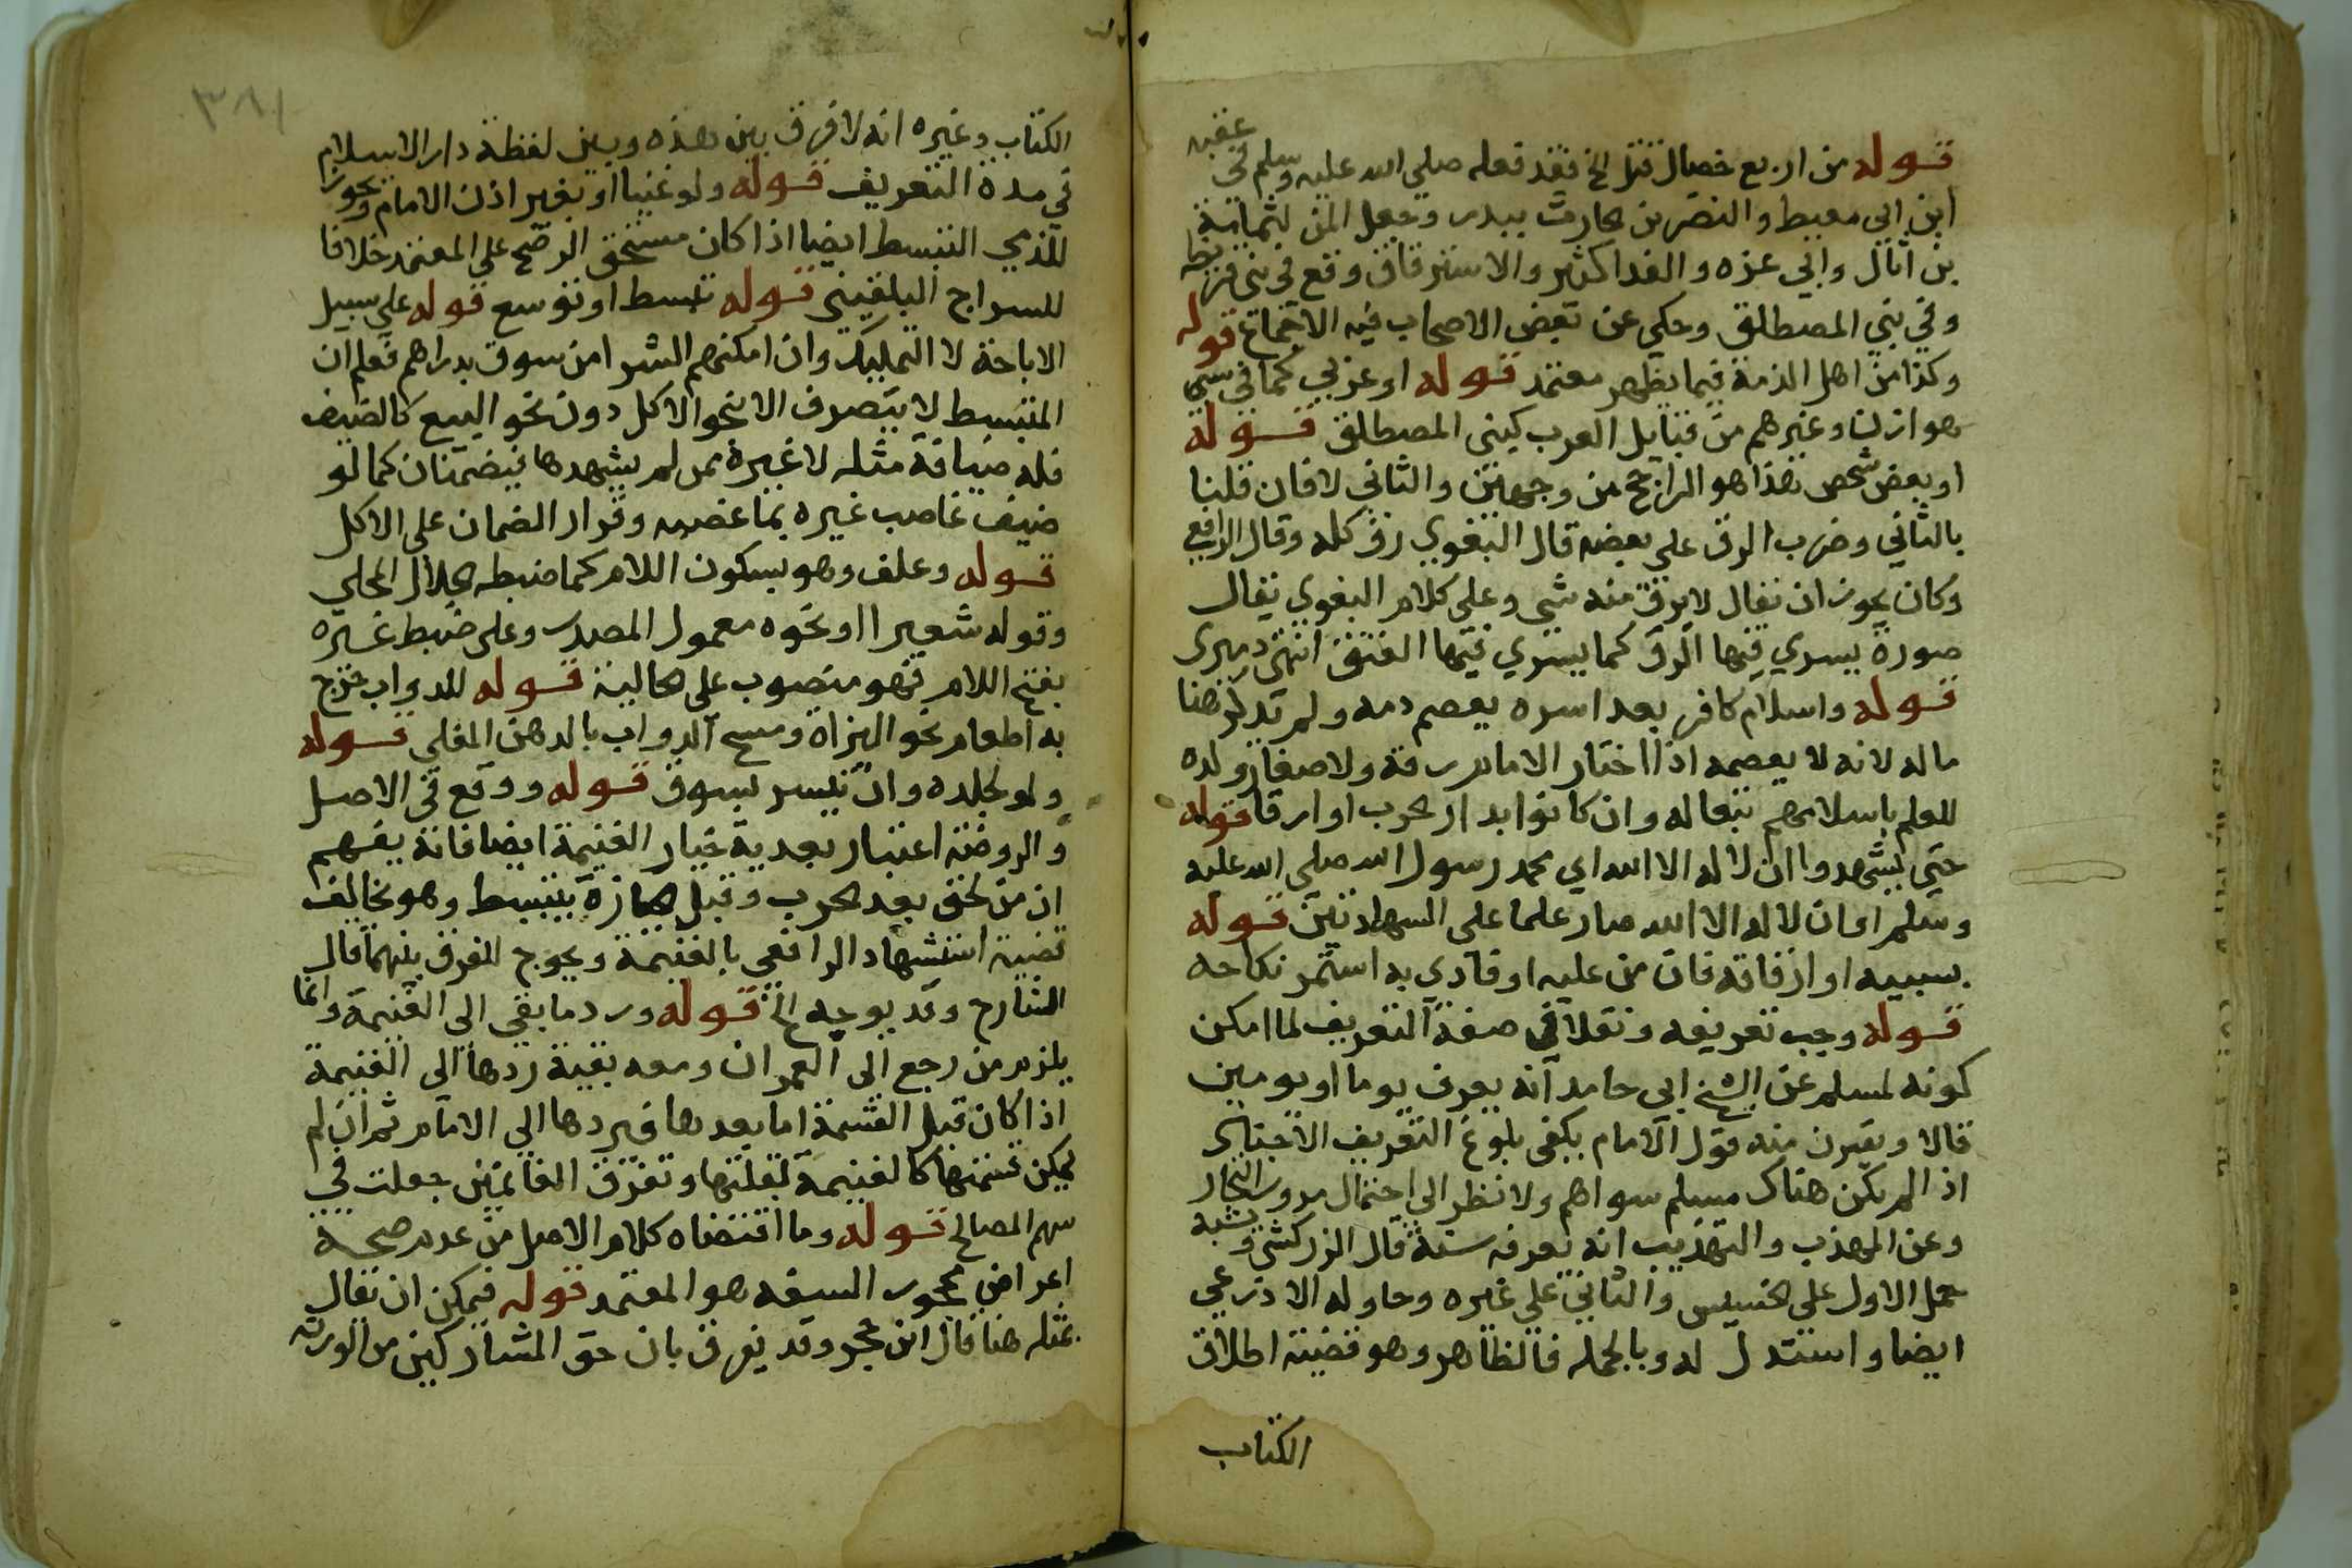 قوله من اربع خصال قتل الخ فقد فعله صلى الله عليه وسلم في عقبة
ابن ابي معيط والنضر بن الحارث ببدر وفعل المن بثمامة
بن اثال وابي عزه والفدا كثير والاسترقاق وقع في بني قريظة
وفي بني المصطلق وحكي عن بعض الاصحاب فيه الاجماع قوله
وكذا من اهل الذمة فيما يظهر معتمد قوله او عربي كما في سبي
هوازن وغيرهم من قبايل العرب كبني المصطلق قوله
او بعض شخص هذا هو الراجح من وجهين والثاني لا فان قلنا
بالثاني وضرب الرق على بعضه قال البغوي رق كله وقال الرافعي
وكان يجوز ان يقال لا يرق منه شي وعلى كلام البغوي يقال
صورة يسري فيها الرق كما يسري فيها العتق انتهى دميري
قوله واسلام كافر بعد اسره يعصم دمه ولم يذكر هنا
ماله لانه لا يعصمه اذا اختار الامام رقه ولا صغار ولده
للعلم باسلامهم تبعا له وان كانوا بدار الحرب او ارقا قوله
حتى يشهدوا ان لا اله الا الله اي محمد رسول الله صلى الله عليه
وسلم او ان لا اله الا الله صار علما على الشهادتين قوله
بسببه او ارقاقه فان من عليه او فادي به استمر نكاحه
قوله وجب تعريفه ونقلا في صفة التعريف لما امكن
كونه لمسلم عن الشيخ ابي حامد انه يعرف يوما او يومين
قالا ويقرب منه قول الامام يكفي بلوغ التعريف الاجناد
اذا لم يكن هناك مسلم سواهم ولا نظر الى احتمال مرور التجار
وعن المهذب والتهذيب انه يعرفه سنة قال الزركشي ويشبه
حمل الاول على الخسيس والثاني على غيره وحاوله الاذرعي
ايضا واستدل له وبالجملة فالظاهر وهو قضية اطلاق
الكتاب
٣٨١
الكتاب وغيره انه لا فرق بين هذه وبين لقطة دار الاسلام
في مدة التعريف قوله ولو غنيا او بغير اذن الامام ويجوز
للذمي التبسط ايضا اذا كان مستحق الرضخ على المعتمد خلافا
للسراج البلقيني قوله تبسط او توسع قوله على سبيل
الاباحة لا التمليك وان امكنهم الشرا من سوق بدراهم فعلم ان
المتبسط لا يتصرف الا بنحو الاكل دون نحو البيع كالضيف
فله ضيافة مثله لا غيره ممن لم يشهدها فيضمنان كما لو
ضيف غاصب غيره بما غصبه وقرار الضمان على الاكل
قوله وعلف وهو بسكون اللام كما ضبطه الجلال المحلي
وقوله شعيرا او نحوه معمول المصدر وعلى ضبط غيره
بفتح اللام فهو منصوب على الحالية قوله للدواب خرج
به اطعام نحو البزاة ومسح الدواب بالدهن المغلي قوله
ولو لجلده وان تيسر بسوق قوله ووقع في الاصل
والروضة اعتبار بعدية خيار الغنيمة ايضا فانه يفهم
ان من لحق بعد الحرب وقبل الحيازة يتبسط وهو مخالف
قضية استشهاد الرافعي بالغنيمة ويحوج الفرق بينهما قال
الشارح وقد يوجه الخ قوله ورد ما بقي الى الغنيمة وانما
يلزم من رجع الى العمران ومعه بقية ردها الى الغنيمة
اذا كان قبل القسمة اما بعدها فيردها الى الامام ثم ان لم
يمكن قسمتها كالغنيمة لقلتها وتفرق الغانمين جعلت في
سهم المصالح قوله وما اقتضاه كلام الاصل من عدم صحة
اعراض محجور السفه هو المعتمد قوله فيمكن ان يقال
بمثله هنا قال ابن حجر وقد يفرق بان حق المشاركين من الورثة